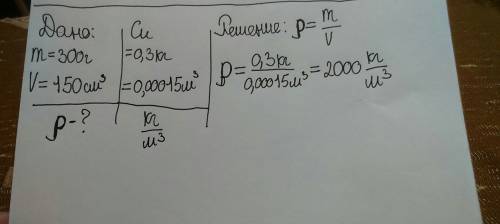 Дано:
m=300г
V=150см³
ρ-?
Си
=0,3кг
=0,00015м³
кг/м³
Решение: ρ=m/V
ρ=0,3кг/0,00015м³=2000 кг/м³